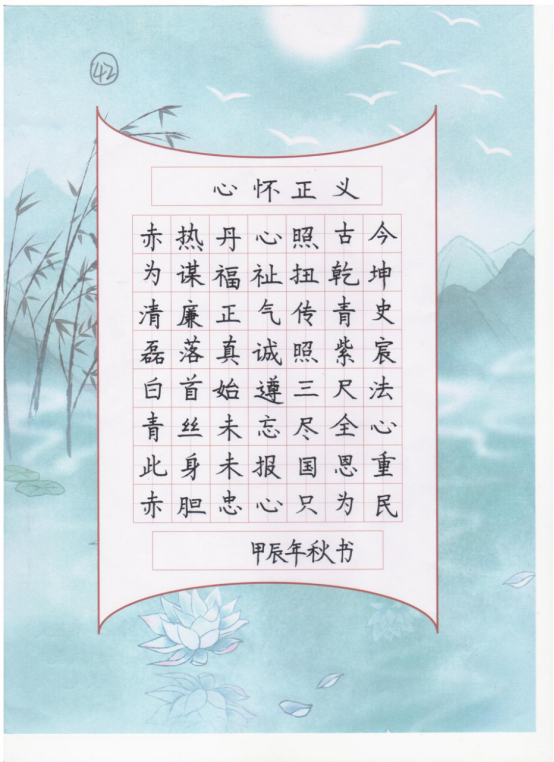 ㊷
心怀正义
赤热丹心照古今
为谋福祉扭乾坤
清廉正气传青史
磊落真诚照紫宸
白首始遵三尺法
青丝未忘尽全心
此身未报国恩重
赤胆忠心只为民
甲辰年秋书